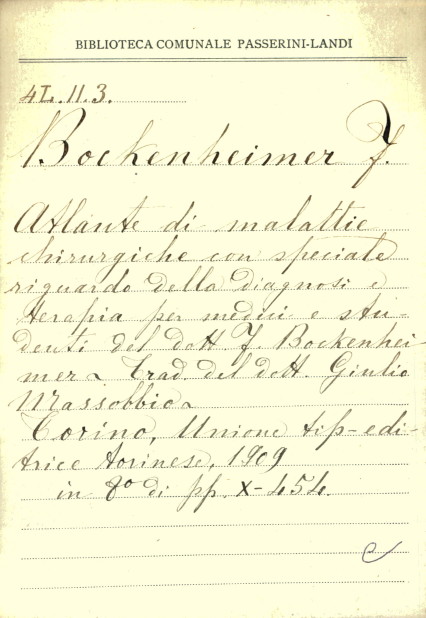 BIBLIOTECA COMUNALE PASSERINI-LANDI
4L. 11. 3.
Bockenheimer F.
Atlante di malattie
chirurgiche con speciale
riguardo della diagnosi e
terapia per medici e stu-
denti del dott F. Bockenhei-
mer Trad. del dott. Giulio
Massobbio
Torino, Unione tip-edi-
trice torinese, 1909
in 8° di pp. X-454.